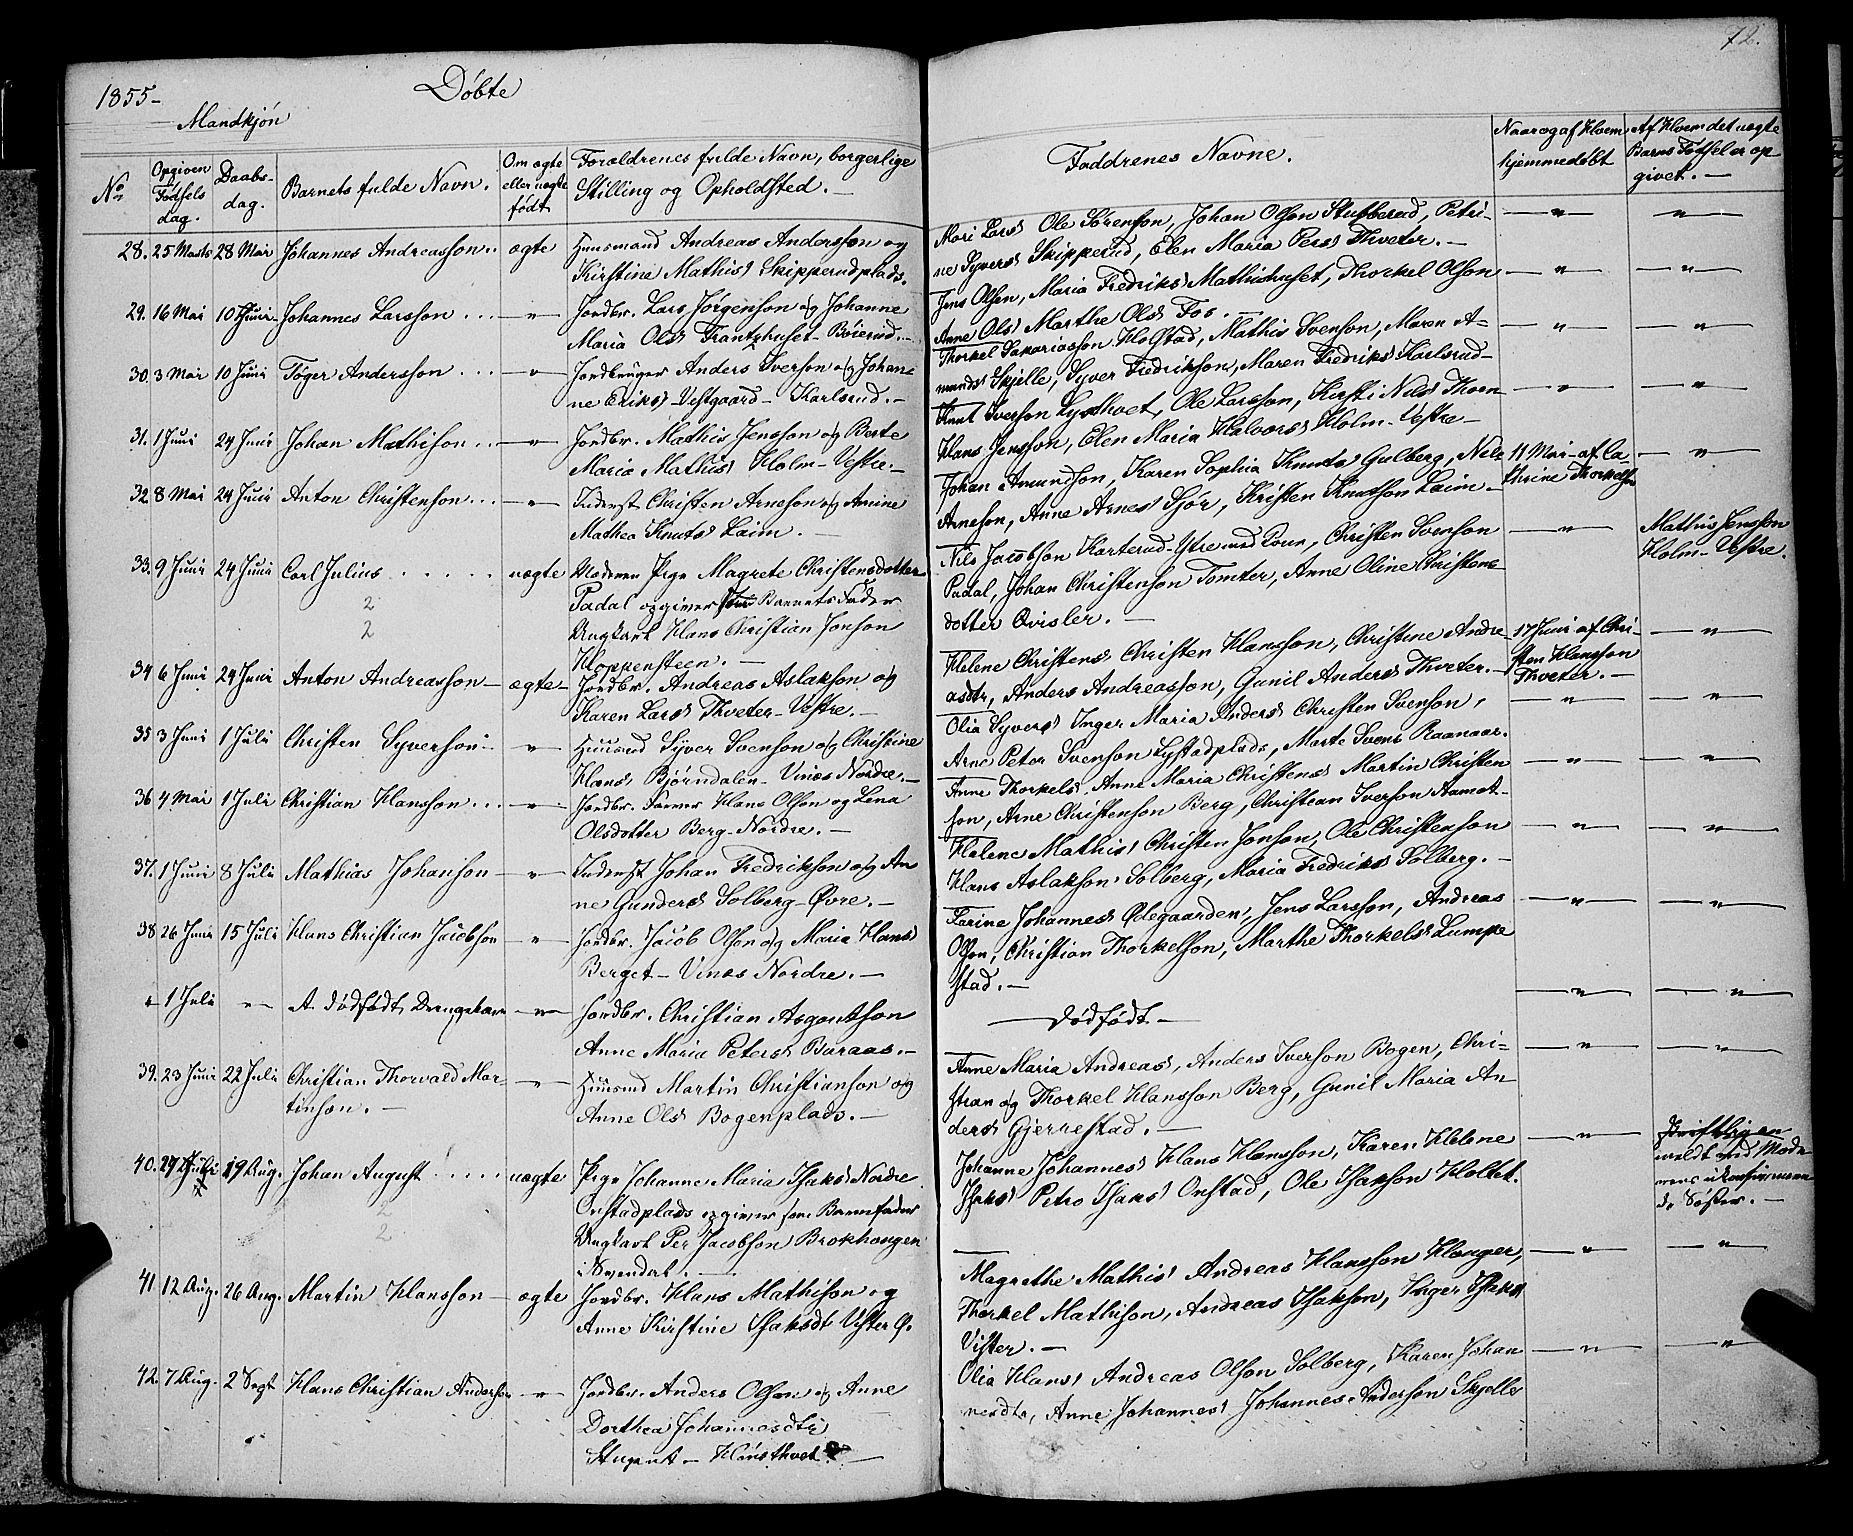 1855-
Døbte
Mandkjøn
12.
No
Opgiven Fødsels dag.
Daabs-dag.
Barnets fulde Navn.
Om ægte eller uægte født
Forældrenes fulde Navn, borgerlige
Stilling og Opholdsted. —
Faddrenes Navne.
Naar og af Hvem
hjemmedøbt
Af Hvem det uægte
Barns Fødsel er op-
givet. —
28. 25 Marts 28 Mai Johannes Andreasson.. ægte Huusmand Andreas Andersson og
Kirstine Mathis Skipperudplads.
Mari Lars Ole Sørenson, Johan Olson Stubberud, Petri-
ne Syvers Skipperud, Elen Maria Pers Thveter. —
— " — — " —
29. 16 Mai 10 Juni Johannes Larsson ... — " — Jordbr. Lars Jørgenson og Johanne
Maria Ols Frantzhuset - Böierud. —
Jens Olson, Maria Fredriks Mathishuset, Thorkel Olson
Anne Ols Marthe Ols Fos. —
— " — — " —
30. 3 Mai 10 Juni Töger Andersson ... — " — Jordbruger Anders Iverson og Johan-
ne Eriks Vestgaard - Karlsrud. —
Thorkel Sakariasson Holstad, Mathis Svenson, Maren A-
munds Skjelle, Syver Fredrikson, Maren Fredriks Karlsrud —
— " — — " —
31. 1 Juni 24 Juni Johan Mathison .. — " — Jordbr. Mathis Jensson og Berte
Maria Mathis Holm - Vestre. —
Knut Iverson Lysthvet, Ole Larsson, Kirsti Nils Thorn
Hans Jensson, Elen Maria Halvors Holm - Vestre —
— " — — " —
32. 8 Mai 24 Juni Anton Christenson ... — " — Inderst Christen Arneson og Amine
Mathea Knuts Laim. —
Johan Amundson, Karen Sophia Knuts Gulberg, Nils
Arneson, Anne Arnes Sjör, Kristen Knutson Laim —
11 Mai - af Ca
thrine Thorkels
— " —
33. 9 Juni 24 Juni Carl Julius ..... uægte Moderen Pige Magrete Christensdotter
Padal opgiver som Barnets Fader
Ungkarl Hans Christian Jonson
Kloppensteen. —
2
2
Nils Jacobson Karterud - Ytre med Kone, Christen Svenson
Padal, Johan Christenson Tomter, Anne Oline Christens
dotter Qvisler. —
— " —
Mathis Jensson
Holm - Vestre.
34 6 Juni 24 Juni Anton Andreasson — ægte — Jordbr. Andreas Aslakson og
Karen Lars Thveter - Vestre. —
Helene Christens Christen Hansson, Christine Andre
asdtr, Anders Andreasson, Gunil Anders Thveter. —
17 Juni af Chri-
sten Hansson
Thveter. —
— " —
35 3 Juni 1 Juli Christen Syverson — " — Huusmd Syver Svenson og Christine
Hans Bjørndalen - Vines Nordre. —
Olia Syvers Inger Maria Anders Christen Svenson,
Arne Peter Svenson Lystadplads, Marte Svens Raanaas.
— " — — " —
36 4 Mai 1 Juli Christian Hansson ... — " — Jordbr. Hans Olson og Lena
Olsdotter Berg - Nordre. —
Anne Thorkels. Anne Maria Christens Martin Christen
son, Arne Christenson Berg, Christian Iverson Aamot —
— " — — " —
37. 1 Juni 8 Juli Mathias Johanson — " — Inderst Johan Fredrikson og An
ne Gunders Solberg - Øvre. —
Helene Mathis Christen Jonson, Ole Christenson
Hans Aslakson Solberg, Maria Fredriks Solberg. —
— " — — " —
38 26 Juni 15 Juli Hans Christian Jacobson — " — Jordbr. Jacob Olson og Maria Hans
Berget - Vines Nordre. —
Karine Johannes Ødegaarden, Jens Larsson, Andreas
Olson, Christian Thorkelsson, Marthe Thorkels Lumpe
stad. —
— " — — " —
" 1 Juli — " — A. dödfödt Drengebarn — " — Jordbr. Christian Asgautson
Anne Maria Peters Buraas. —
— Dödfödt —
— " — — " —
39. 23 Juni 22 Juli Christian Thorvald Mar-
tinson. —
— " — Huusmd Martin Christianson og
Anne Ols Bogenplads. —
Anne Maria Andreas, Anders Iverson Bogen, Chri-
stian og Thorkel Hansson Berg, Gunil Maria An-
ders Gjerrestad. —
— " — — " —
40. 27 Juli 19 Aug. Johan August ..... uægte Pige Johanne Maria Isaks Nordre
Onstadplads opgiver som Barnefader
Ungkarl Per Jacobson Brokhougen
i Svendal. —
2
2
Johanne Johannes Hans Hansson, Karen Helene
Isaks Petro Isaks Onstad, Ole Isakson Holtet.
— " —
Skriftlig an
meldt ved Mode
rens ukonfirmere
de Søster. —
41 12 Aug. 26 Aug. Martin Hansson — ægte Jordbr. Hans Mathison og
Anne Kirstine Isaksdt. Vister Ø.
Magrethe Mathis Andreas Hansson Hanger,
Thorkel Mathison, Andreas Isakson, Inger Isaks
Vister. —
— " — — " —
42. 7 Aug. 2 Sept Hans Christian Anderson — " — Jordbr. Anders Olson og Anne
Dorthea Johannesdtr
Stugent - Hönsthvet. —
Olia Hans Andreas Olson Solberg, Karen Johan
nesdtr, Anne Johannes Johannes Anderson Skjelle
— " — — " —